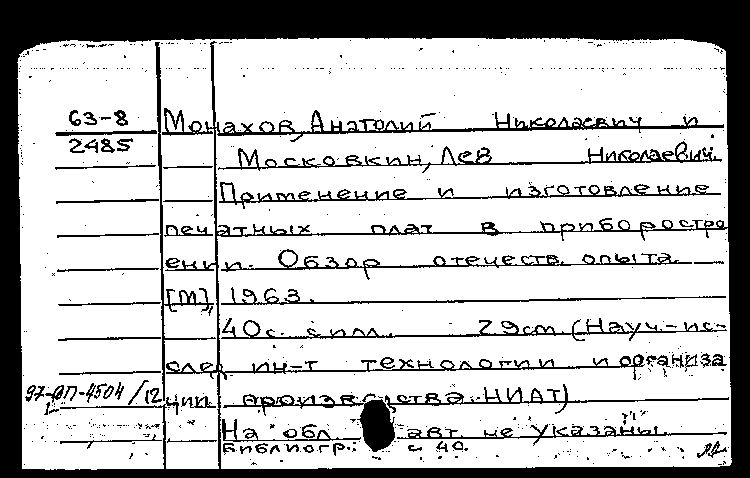 63-8
2485
Монахов, Анатолий Николаевич и
Московкин, Лев Николаевич.
Применение и изготовление
печатных плат в приборостро
ении. Обзор отечеств. опыта.
[М], 1963.
40с. с илл. 29см. (Науч.-ис-
след ин-т технологии и организа
97-ОП-4504/12
ции производства. НИАТ)
На обл. авт. не указаны.
Библиогр.: с 40.